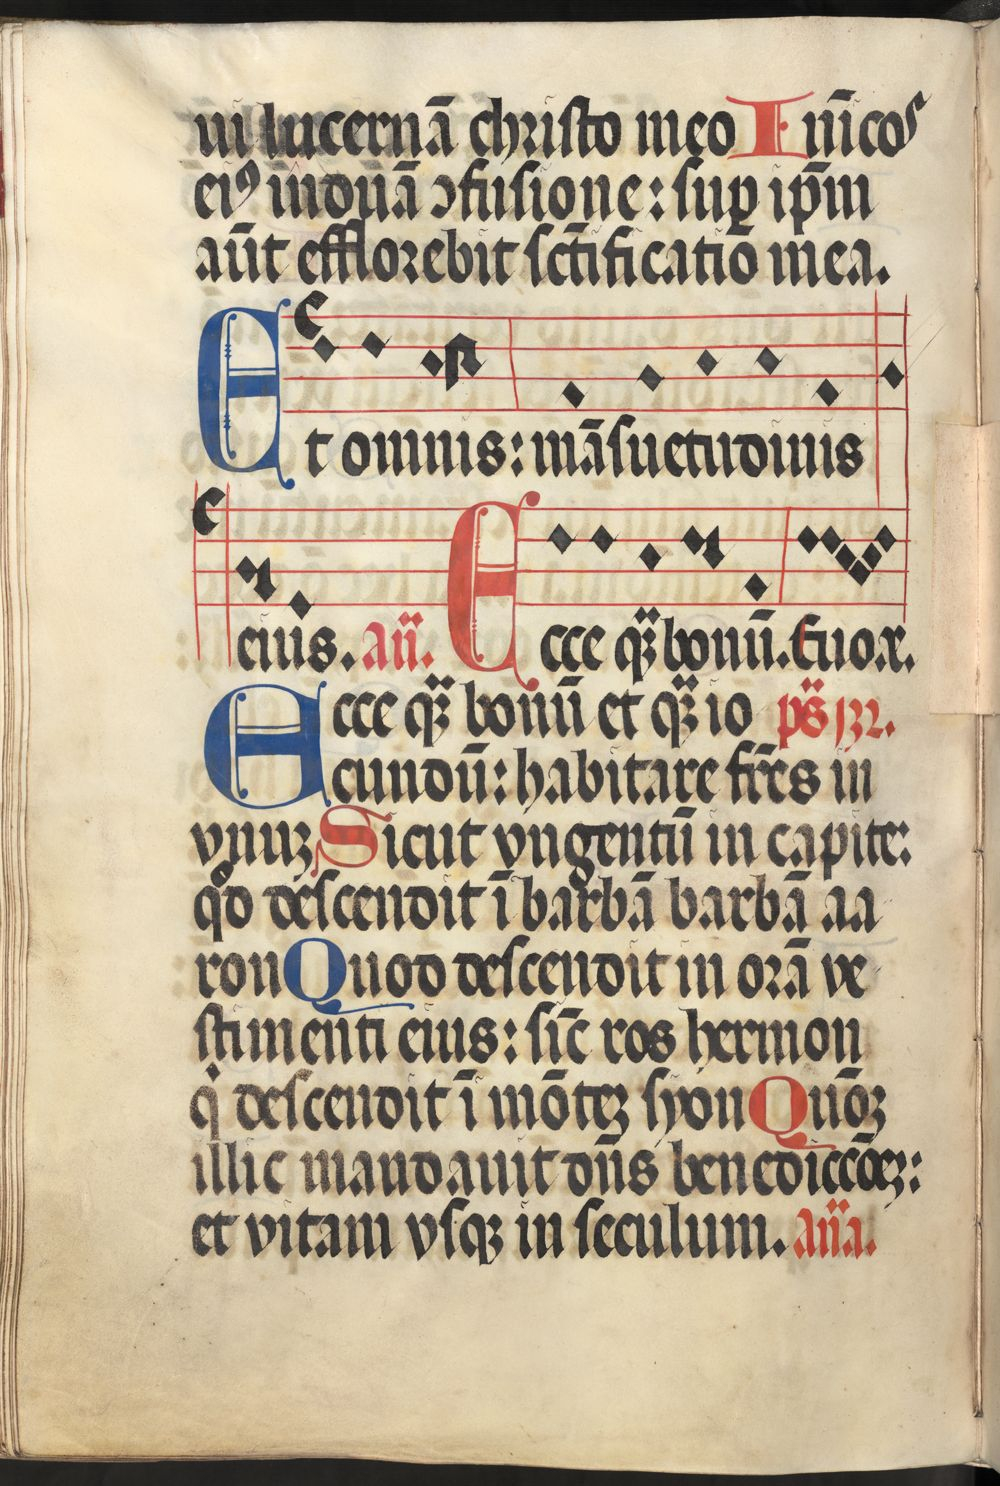 ui lucernā christo meo Inīcos
eiꝰ īnduā ↄfusione: suꝑ ip̄m
aūt efflorebit sct̄ificatiō mea.
Et omnis: māsuetudinis
eius. añ. Ecce qͫ bonū. Euoæ.
Ecce qͫ bonū et qͫ io ps̄ 132.
cundū: habitare fr̄es in
vnuꝫ Sicut vngentū in capite:
qd̄ descendit ī barbā barbā aa
ron Quod descendit in orā ve
stimenti eius: sic̄ ros hermon
q̇ descendit ī mōteꝫ syon Quōꝫ
illic mandauit dn̄s benediccōeꝫ:
et vitam vsqꝫ in seculum. an̄a.